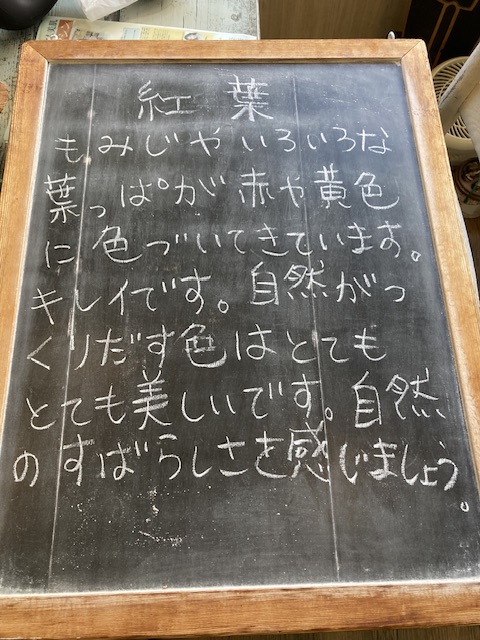 紅葉
もみじやいろいろな
葉っぱが赤や黄色
に色づいてきています。
キレイです。自然がつ
くりだす色はとても
とても美しいです。自然
のすばらしさを感じましょう。